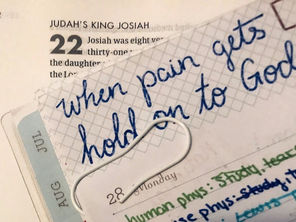 JUDAH'S KING JOSIAH
22 Josiah was eight
thirty-one
the daughter
the Lo
when pain gets
hold on to God
JUL
AUG
28 Monday
human phys: Study
phys: study